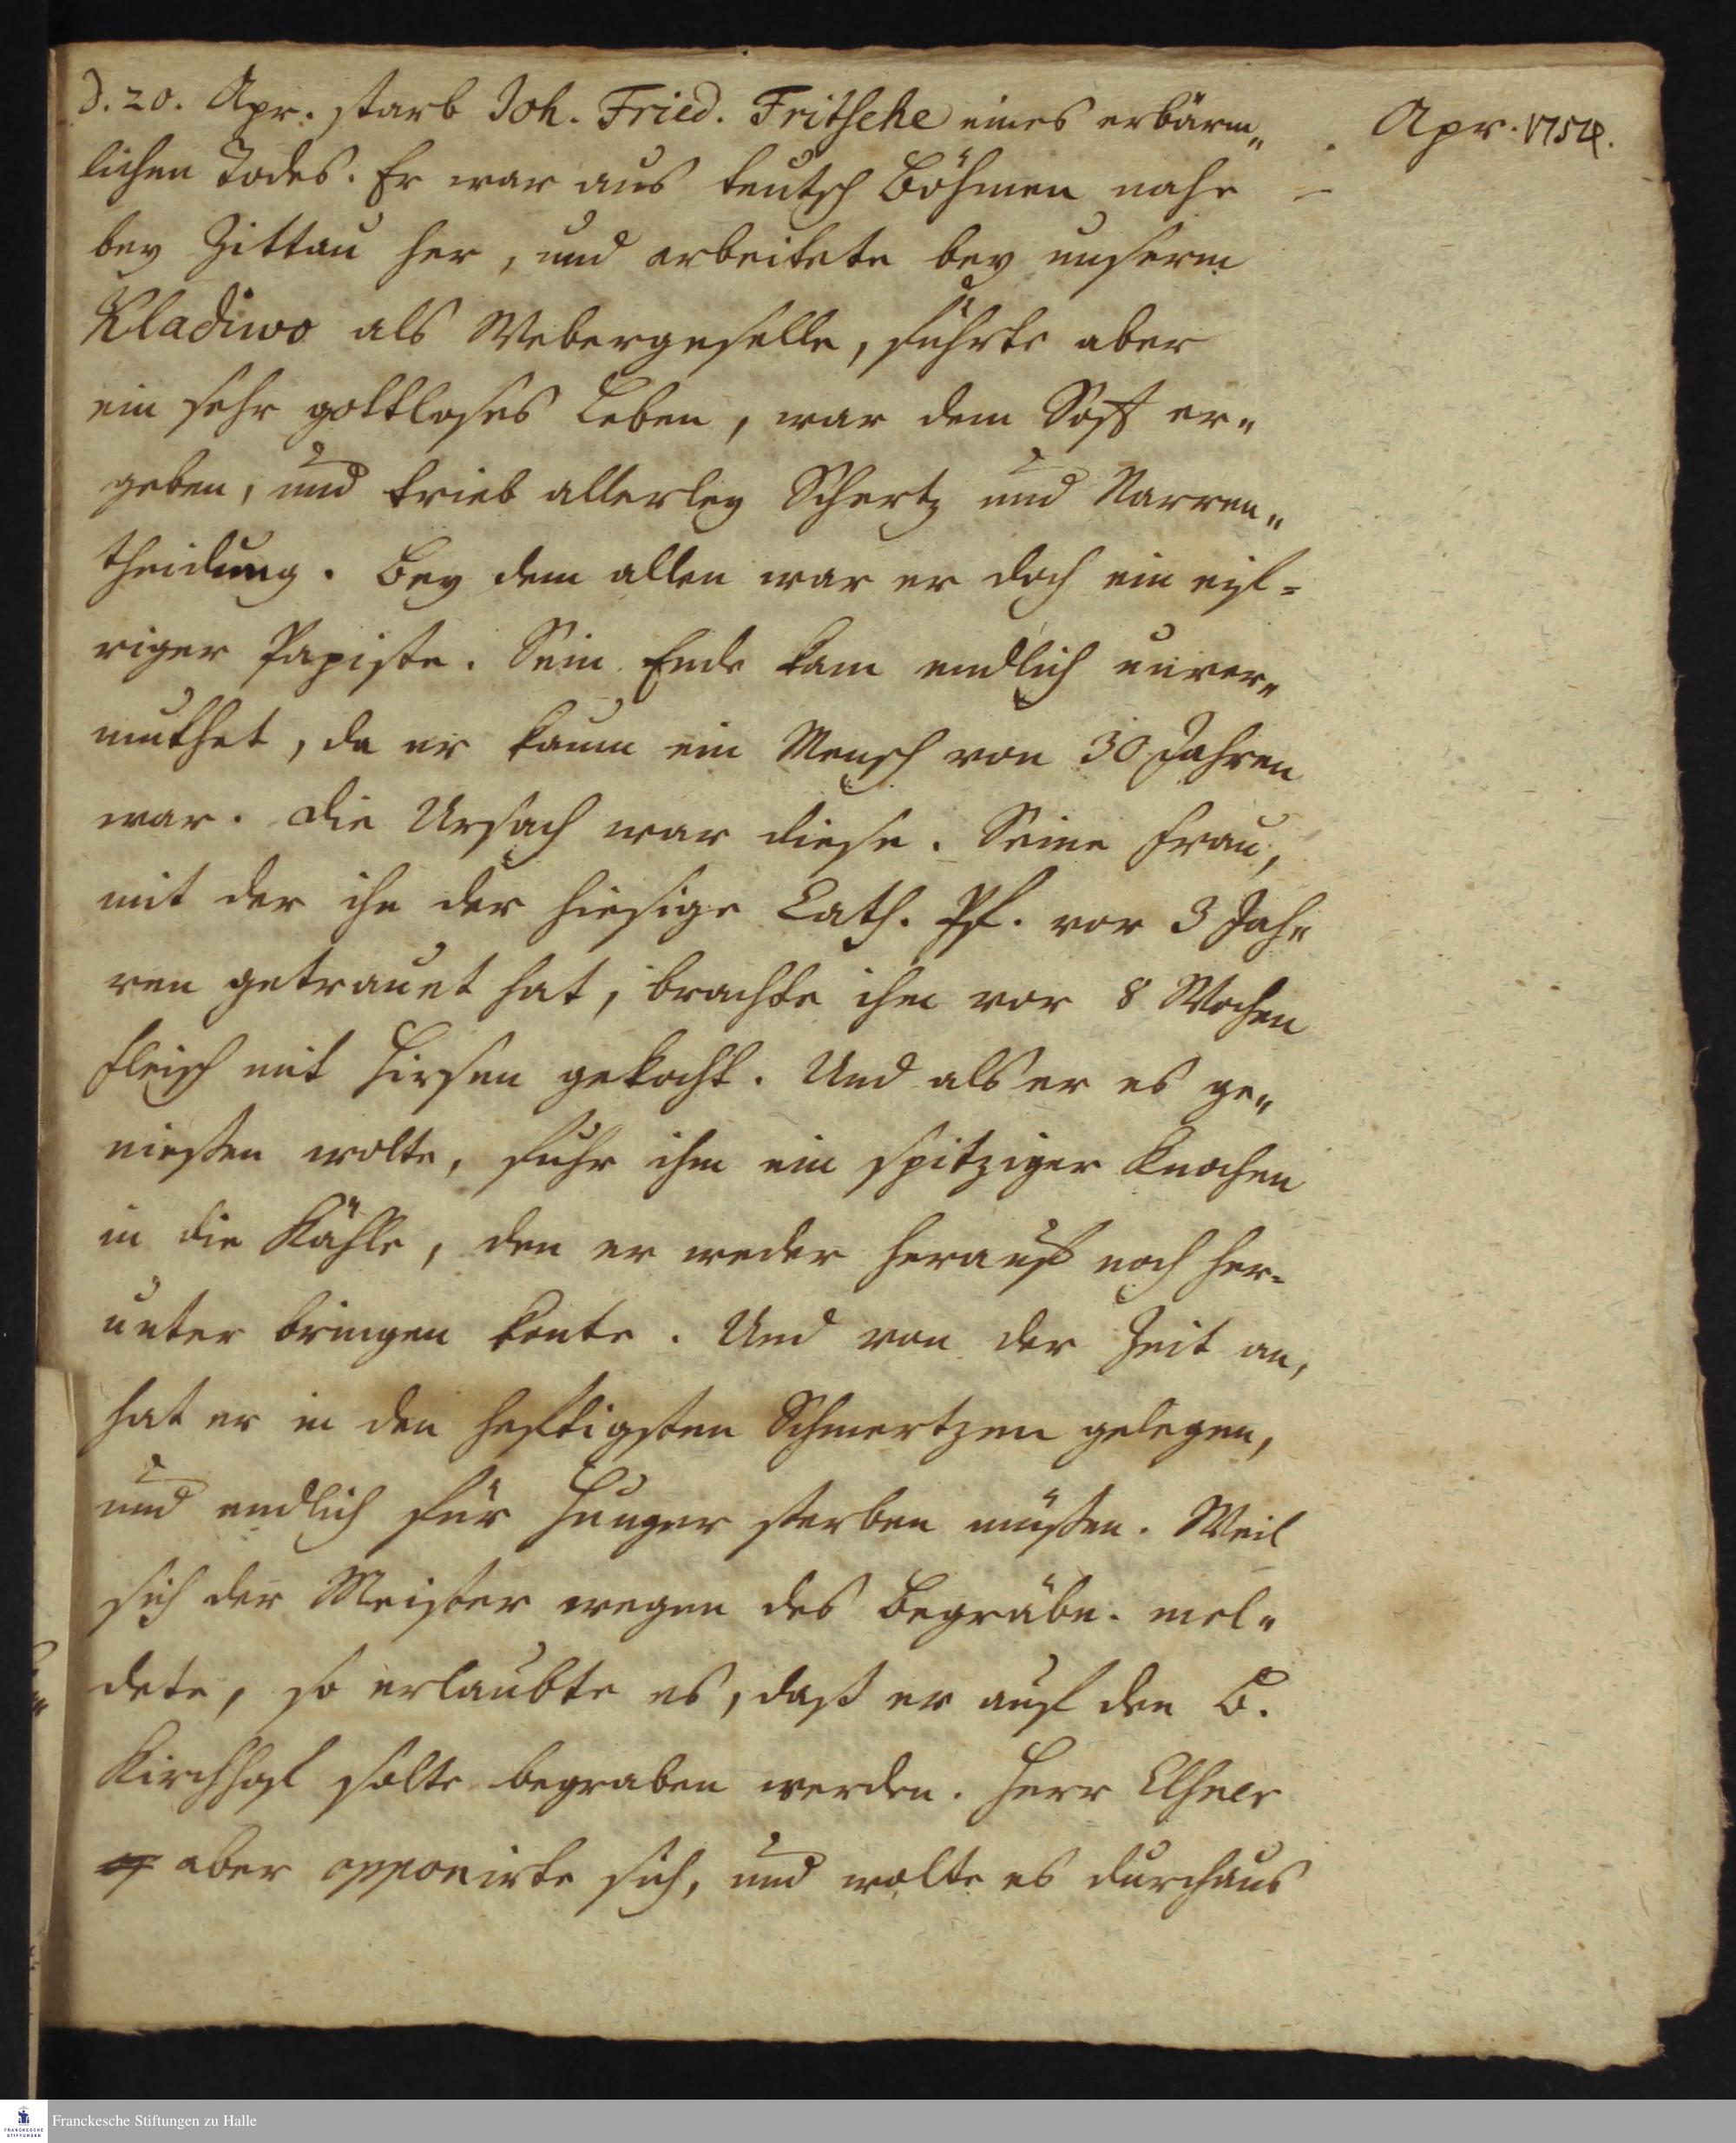 d. 20. Apr. starb Joh. Fried. Fritsche eines erbärm„
Apr. 1754.
lichen Todes. Er war aus teutsch Böhmen nahe
bey Zittau her, und arbeitete bey unserm
Kladiwo als Webergeselle, führte aber
ein sehr gottloses Leben, war dem Soff er„
geben, und trieb allerley Schertz und Narren„
theidung. Bey dem allen war er doch ein eif=
riger Papiste. Sein Ende kam endlich unver„
muthet, da er kaum ein Mensch von 30 Jahren
war. Die Ursach war diese. Seine Frau,
mit der ihn der hiesige Cath. Pf. vor 3 Jah„
ren getrauet hat, brachte ihm vor 8 Wochen
Fleisch mit Hirsen gekocht. Und als er es ge„
niessen wolte, fuhr ihm ein spitziger Knochen
in die Kähle, den er weder herauf noch her=
unter bringen konte. Und von der Zeit an,
hat er in den hefftigsten Schmertzen gelegen,
und endlich für Hunger sterben müssen. Weil
sich der Meister wegen des Begräbn. mel„
dete, so erlaubte es, daß er auf den B.
Kirchhof solte begraben werden. Herr Elsner
aber opponirte sich, und wolte es durchaus
Franckesche Stiftungen zu Halle
FRANCKESCHE
STIFTUNGEN